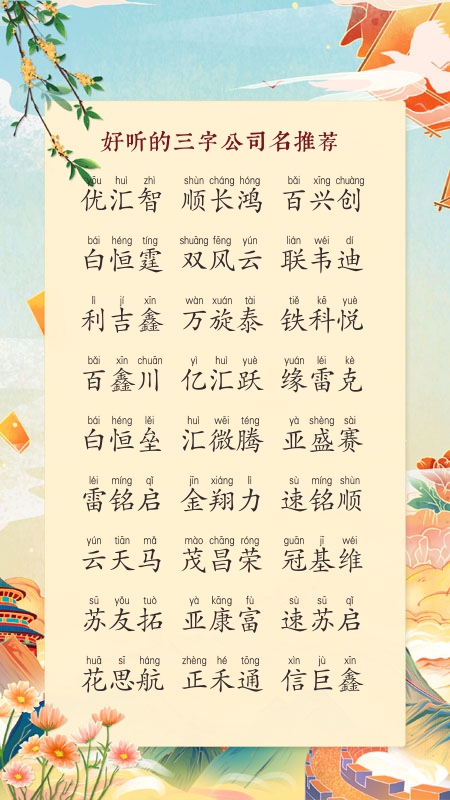 好听的三字公司名推荐
yōu huì zhì shùn cháng hóng bǎi xīng chuàng
优汇智 顺长鸿 百兴创
bái héng tíng shuāng fēng yún lián wéi dí
白恒霆 双风云 联韦迪
lì jí xīn wàn xuán tài tiě kē yuè
利吉鑫 万旋泰 铁科悦
bǎi xīn chuān yì huì yuè yuán léi kè
百鑫川 亿汇跃 缘雷克
bái héng lěi huì wēi téng yà shèng sài
白恒垒 汇微腾 亚盛赛
léi míng qǐ jīn xiáng lì sù míng shùn
雷铭启 金翔力 速铭顺
yún tiān mǎ mào chāng róng guān jī wéi
云天马 茂昌荣 冠基维
sū yǒu tuò yà kāng fù sù sū qǐ
苏友拓 亚康富 速苏启
huā sī háng zhèng hé tōng xìn jù xīn
花思航 正禾通 信巨鑫